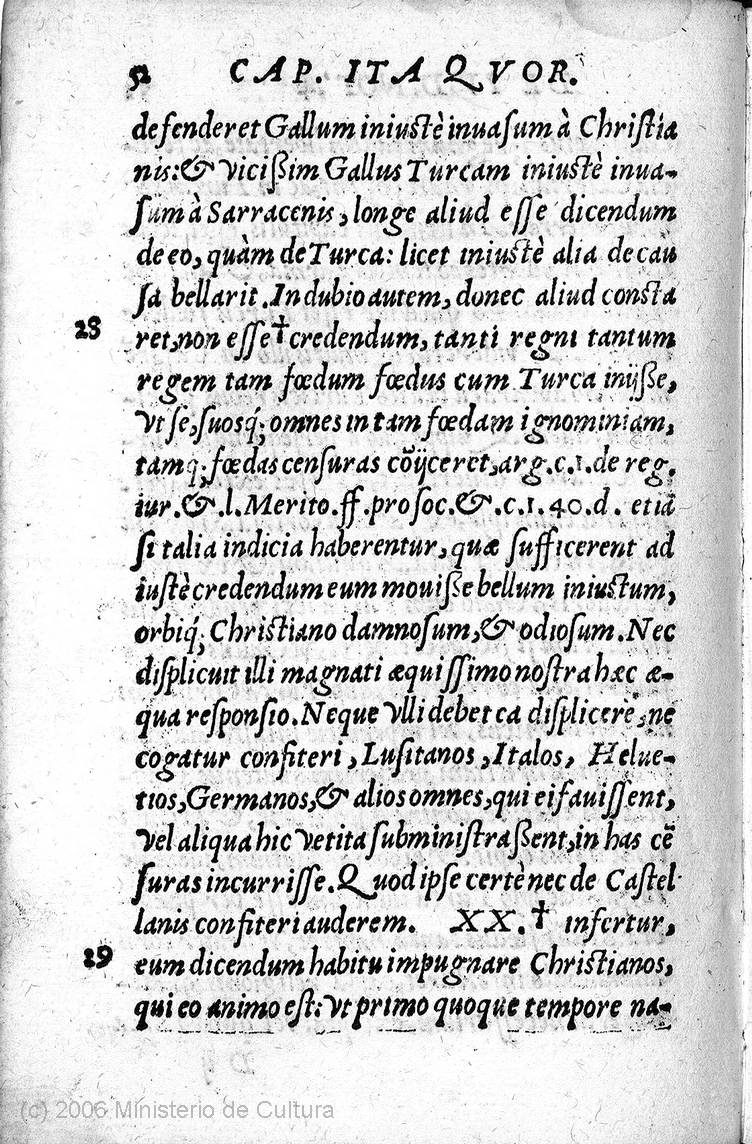 52 CAP. ITA QVOR.
defenderet Gallum iniustè inuasum à Christia
nis:& vicißim Gallus Turcam iniustè inua-
sum à Sarracenis, longe aliud esse dicendum
de eo, quàm de Turca: licet iniustè alia de cau
sa bellarit. In dubio autem, donec aliud consta
28 ret, non esse † credendum, tanti regni tantum
regem tam fœdum fœdus cum Turca inijße,
vt se, suosq́; omnes in tam fœdam ignominiam,
tamq; fœdas censuras cõijceret, arg.c.1.de reg.
iur.&.l.Merito.ff.pro soc.&.c.1.40.d. etiã
si talia indicia haberentur, quæ sufficerent ad
iustè credendum eum mouiße bellum iniustum,
orbiq́; Christiano damnosum, & odiosum. Nec
displicuit illi magnati æquissimo nostra hæc æ-
qua responsio. Neque vlli debet ea displicere, ne
cogatur confiteri, Lusitanos, Italos, Helue-
tios, Germanos, & alios omnes, qui ei fauissent,
vel aliqua hic vetita subministraßent, in has cẽ
suras incurrisse. Quod ipse certè nec de Castel
lanis confiteri auderem. XX. † infertur,
29 eum dicendum habitu impugnare Christianos,
qui eo animo est: vt primo quoque tempore na-
(c) 2006 Ministerio de Cultura